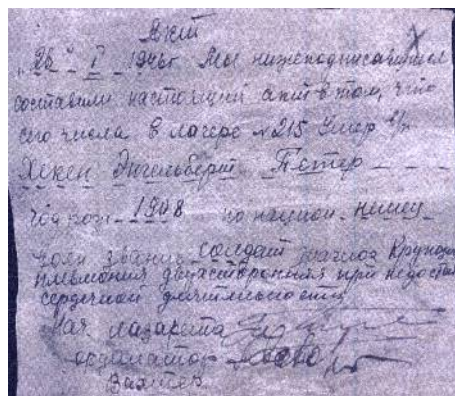 Акт
"26" I 1946г Мы нижеподписавшиеся
составили настоящий акт в том, что
сего числа в лагере №215 Умер в/п
Хекен Энгельберт Петер
год рож. 1908 по национ. немец
звание солдат диагноз Крупозн
пневмония двухсторонняя при недостат
сердечной деятельности
Нач. лазарета
ординатор
Вахтер